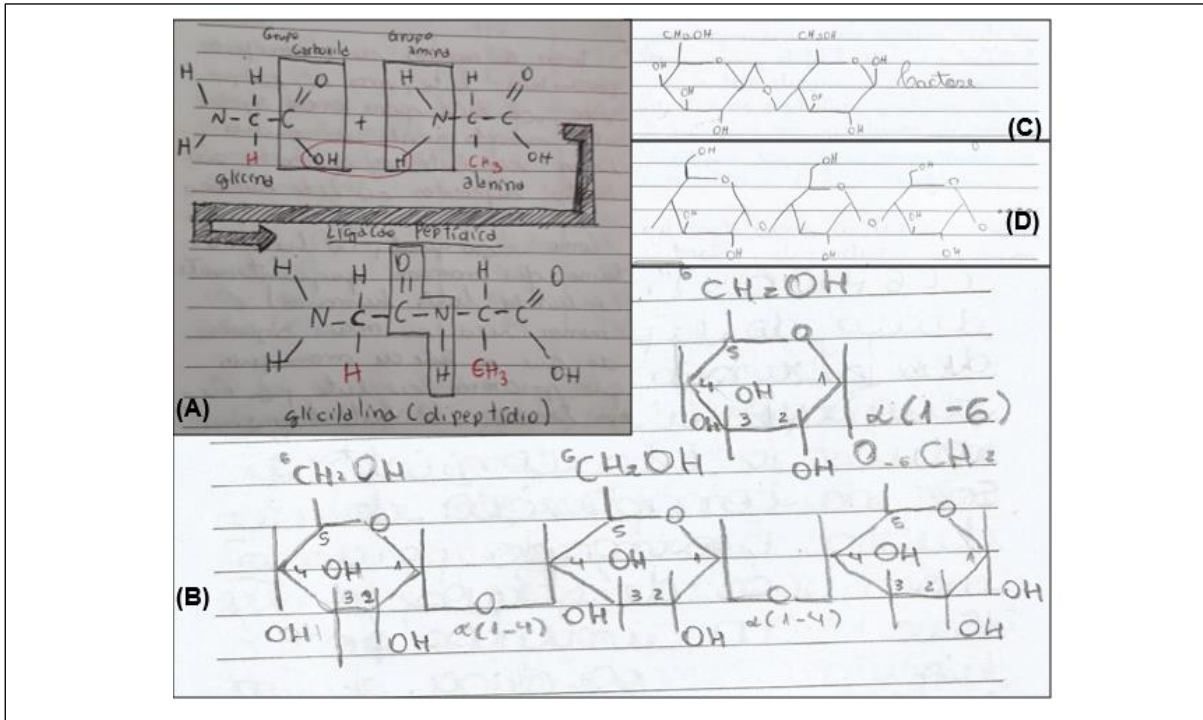 Grupo
Carboxila
Grupo
amina
H H O H H O
N - C - C + N - C - C
H H OH H CH3 OH
glicina alanina
Ligação Peptídica
H H O H O
N - C - C - N - C - C
H H H CH3 OH
glicilalina (dipeptídio)
(A)
CH2OH CH2OH
OH O O O OH
OH OH
OH OH
Lactose
(C)
OH OH OH
O O O
OH OH OH
O O O
OH OH OH
(D)
6 CH2OH
5 O
4 OH 1
OH 3 2 α(1-6)
OH O-6CH2
6CH2OH 6CH2OH
5 O 5 O 5 O
4 OH 1 4 OH 1 4 OH 1
3 2 O 3 2 O 3 2 OH
OH α(1-4) OH α(1-4)
OH OH OH
(B)